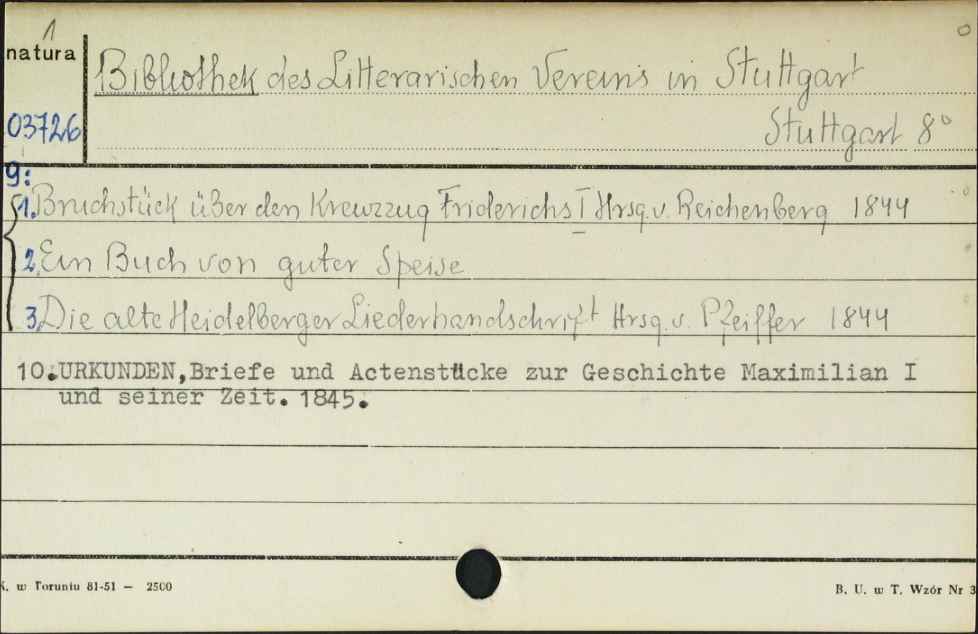 1
natura
Bibliothek des Litterarischen Vereins in Stuttgart
03726
Stuttgart 8°
9:
1. Bruchstück über den Kreuzzug Friderichs I Hrsg. v. Reichenberg 1844
2. Ein Buch von guter Speise
3. Die alte Heidelberger Liederhandschrift Hrsg. v. Pfeiffer 1844
10. URKUNDEN, Briefe und Actenstücke zur Geschichte Maximilian I
und seiner Zeit. 1845.
K. w Toruniu 81-51 — 2500
B. U. w T. Wzór Nr 3